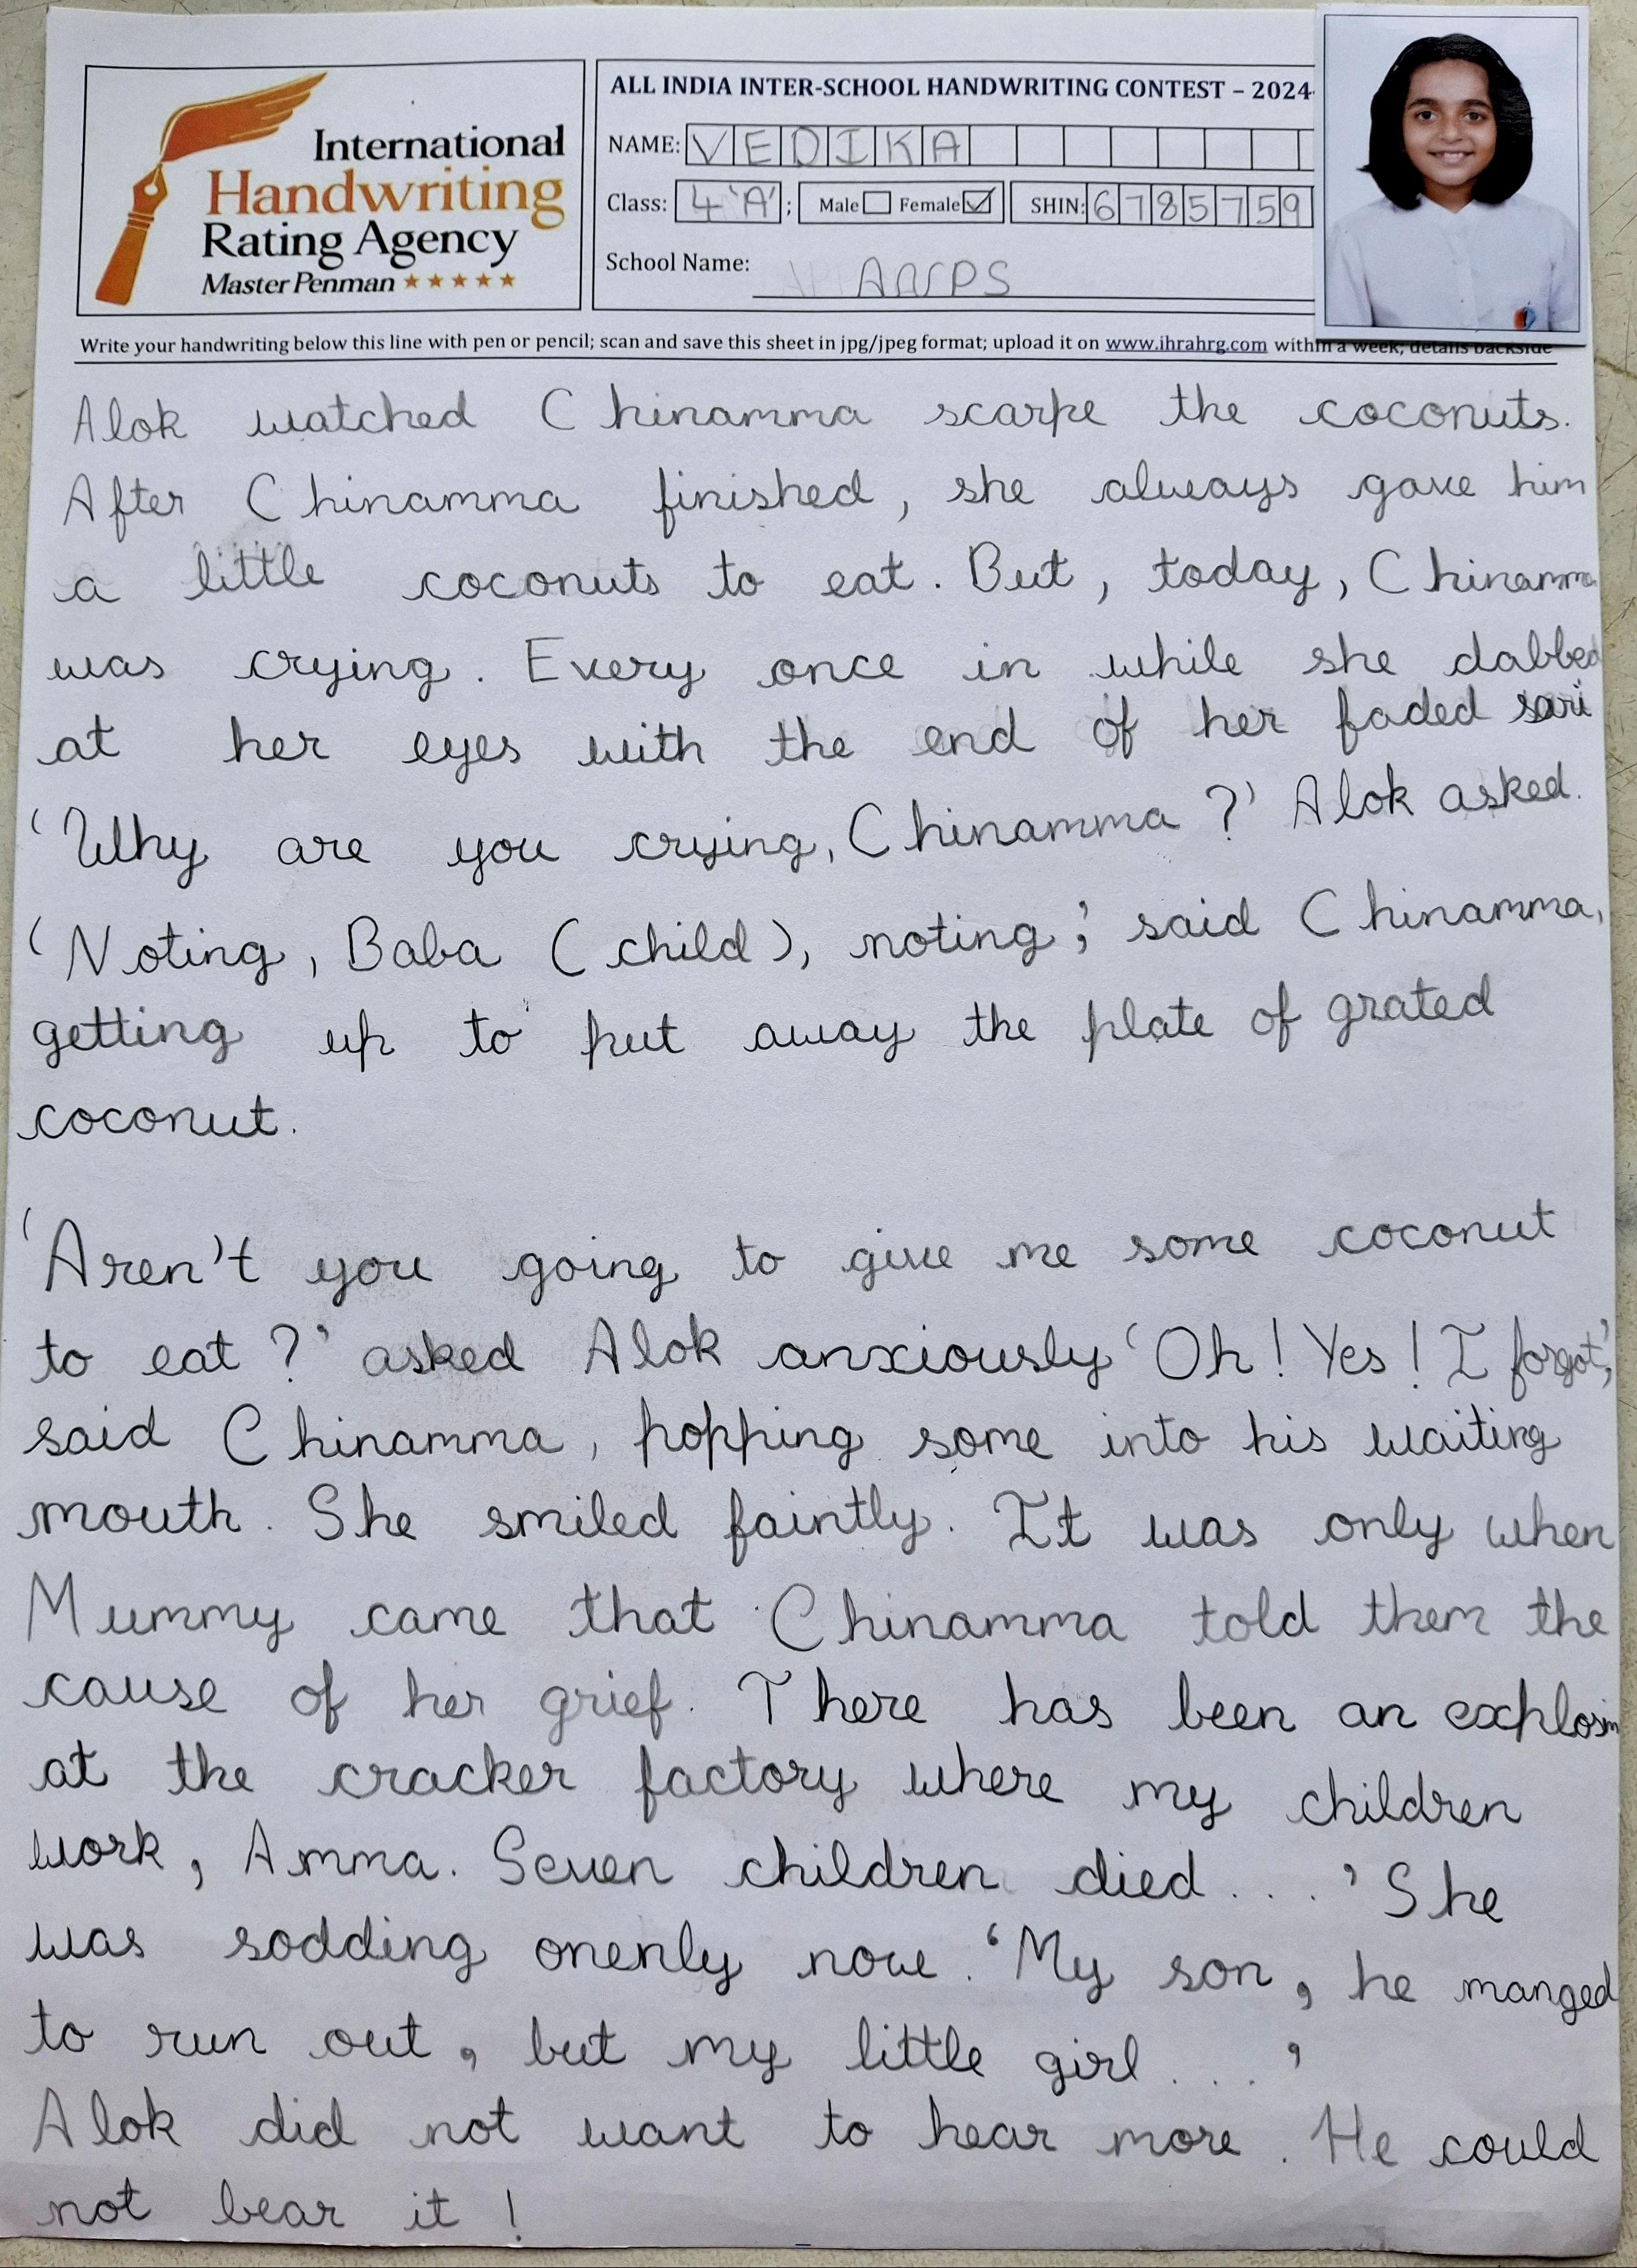 International
Handwriting
Rating Agency
Master Penman
ALL INDIA INTER-SCHOOL HANDWRITING CONTEST – 2024-
NAME: VEDIKA
Class: 4 'A' ; Male Female SHIN: 6785759
School Name: AWPS
Write your handwriting below this line with pen or pencil; scan and save this sheet in jpg/jpeg format; upload it on www.ihrahrg.com within a week; details backside
Alok watched Chinamma scarpe the coconuts.
After Chinamma finished, she always gave him
a little coconuts to eat. But, today, Chinamma
was crying. Every once in while she dabbed
at her eyes with the end of her faded sari
'Why are you crying, Chinamma?' Alok asked.
'Noting, Baba (child), noting,' said Chinamma,
getting up to put away the plate of grated
coconut.
'Aren't you going to give me some coconut
to eat?' asked Alok anxiously 'Oh! Yes! I forgot,'
said Chinamma, popping some into his waiting
mouth. She smiled faintly. It was only when
Mummy came that Chinamma told them the
cause of her grief. There has been an explosin
at the cracker factory where my children
work, Amma. Seven children died....' She
was sodding onenly now. 'My son, he manged
to run out, but my little girl....'
Alok did not want to hear more. He could
not bear it!